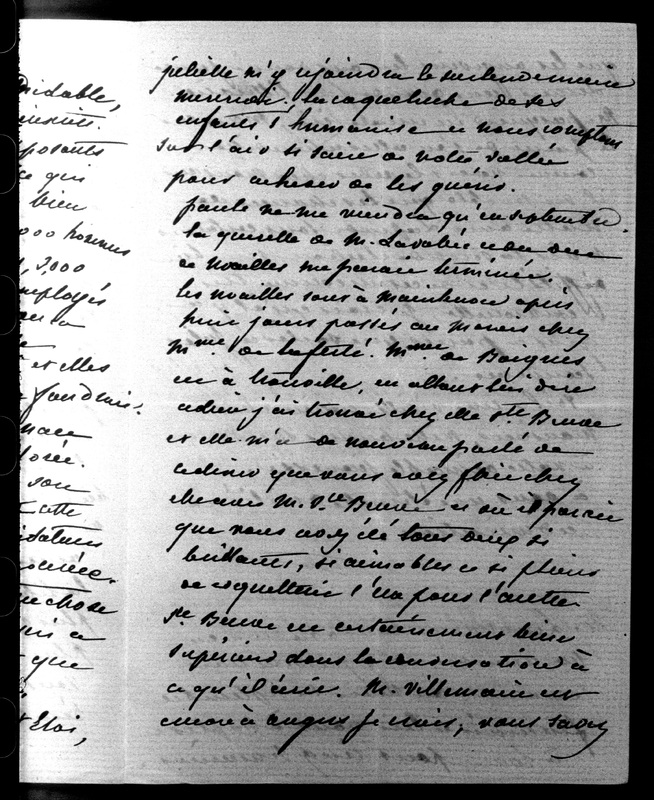 midable,
posants
ce qui
bien
000 hommes
3,000
employés
et elles
faudrait.
son
cette
que
juliette m'y rejoindra le surlendemain
mercredi. la coqueluche de ses
enfants s'humanise et nous comptons
sur l'air si sain de notre vallée
pour achever de les guérir.
paule ne me viendra qu'en septembre.
la querelle de M. Lavalée et du duc
de noailles me parait terminée.
les noailles sont à maintenon après
huit jours passés au marais chez
Mme. de la ferté. Mme de Boignes
est à trouville, en allant lui dire
adieu j'ai trouvé chez elle Ste. Beuve
et elle m'a de nouveau parlé de
diner que vous avez fait chez
M. Ste Beuve et où il parait
que vous avez été tous deux si
brillants, si aimables et si pleins
de coquetterie l'un pour l'autre.
Ste Beuve est certainement bien
supérieur dans la conversation à
ce qu'il écrit. M. Villemain est
encore à je crois, vous savez